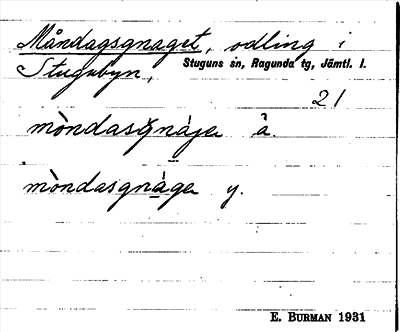 Måndagsgnaget, odling i
Stugubyn, Stuguns sn, Ragunda tg, Jämtl. l.
21
mòndasgnáje å.
mòndasgnáge y.
E. BURMAN 1931